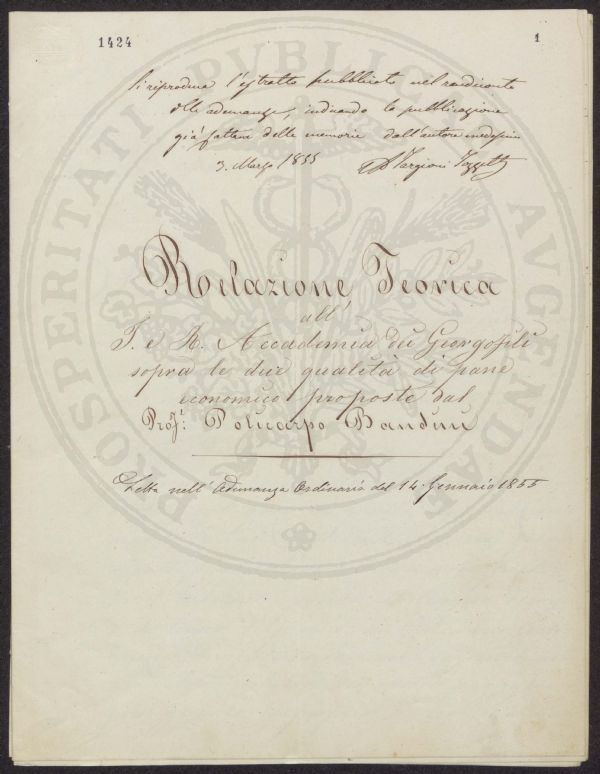 1424
1
Si riproduca l'estratto pubblicato nel rendiconto
delle adunanze, indicando la pubblicazione
già fattane delle memorie dall'autore medesimo
3. Marzo 1855 Targioni Tozzetti
Relazione Teorica
all'
I. e R. Accademia dei Georgofili
sopra le due qualità di pane
economico proposte dal
Prof.: Policarpo Bandini
Letta nell'Adunanza Ordinaria del 14. Gennaio 1855
PROSPERITATI PVBLICAE AVGENDAE